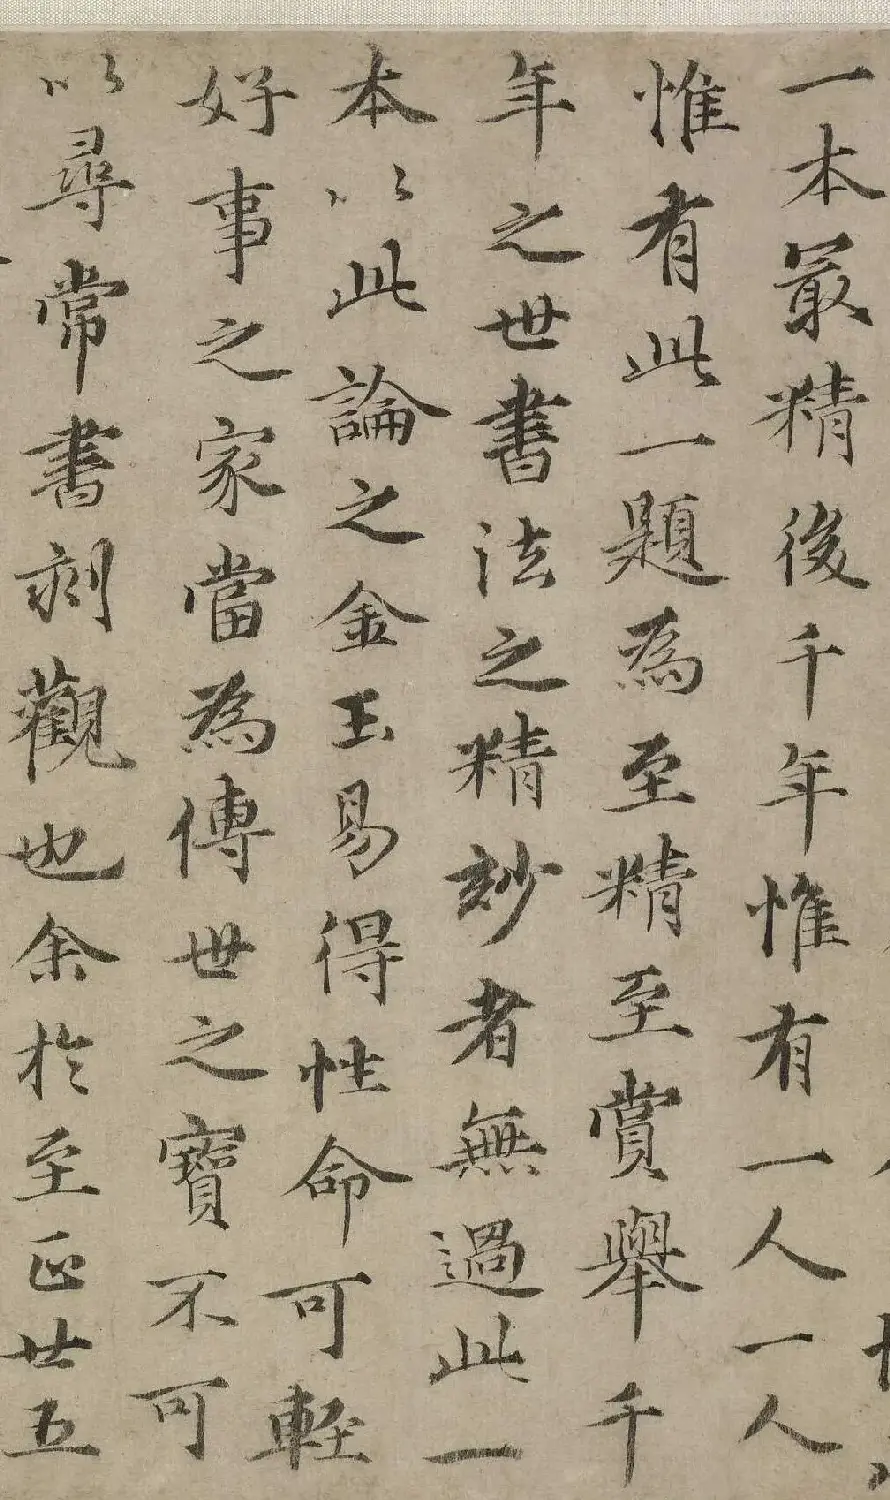 一本最精後千年惟有一人一人
惟有此一題為至精至賞舉千
年之世書法之精妙者無過此一
本以此論之金玉易得性命可輕
好事之家當為傳世之寶不可
以尋常書刻觀也余於至正廿五